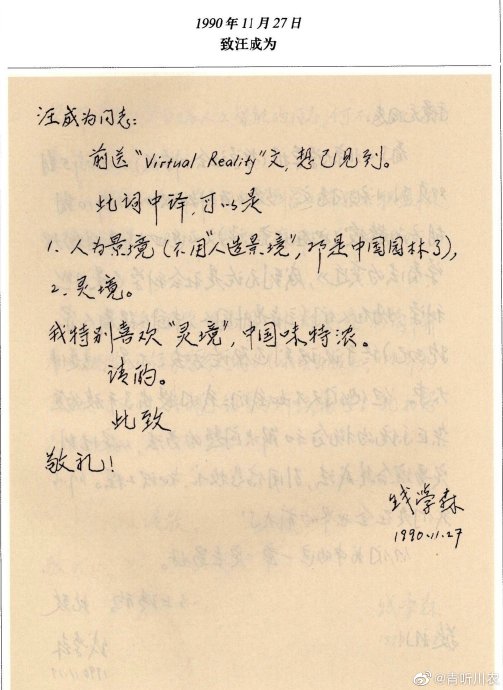 1990年11月27日
致汪成为
汪成为同志：
前送“Virtual Reality”文，想已见到。
此词中译，可以是
1. 人为景境（不用“人造景境”，那是中国园林了），
2. 灵境。
我特别喜欢“灵境”，中国味特浓。
请酌。
此致
敬礼！
钱学森
1990.11.27
@肯听川农